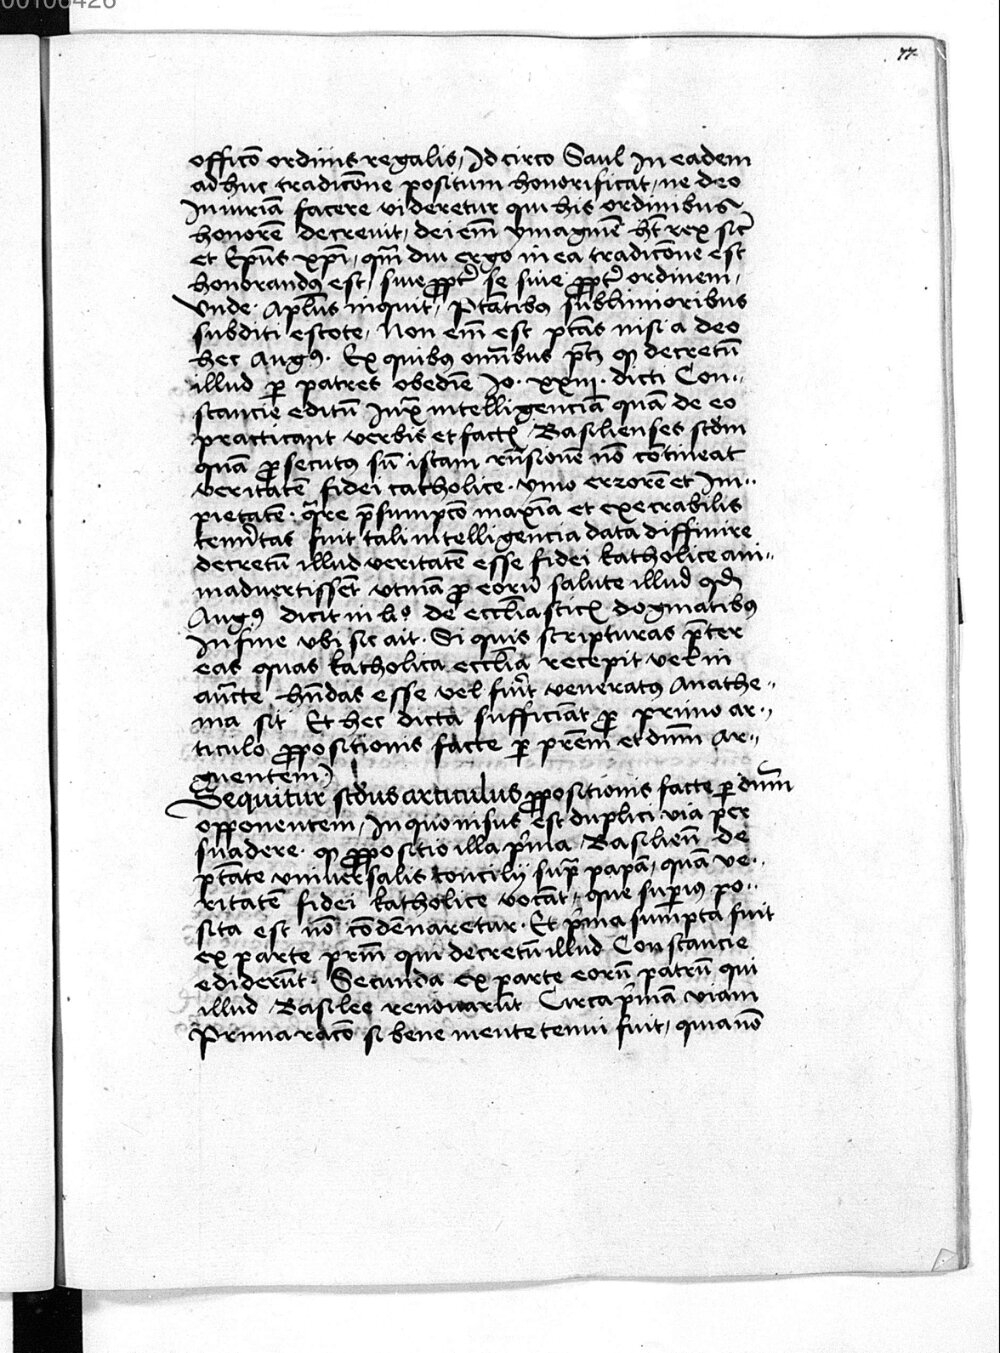 00106426
77
officō ordinis regalis, Idcirco Saul In eadem
adhuc tradicōne positum honorificat, ne deo
Iniuriā facere videretur qui his ordinibus
honorē decreuit, dei em̄ ymaginē hꝫ rex sic̄
et Ep̄us xp̄i, qm̄diu ergo in ea tradicōne est
honorandꝰ est, siue ꝓpt̄ se siue ꝓpt̄ ordinem,
vnde Apl̄us inquit, Ptātibꝰ sublimioribus
subditi estote, Non em̄ est ptās nisi a deo
hec Augꝰ. Ex quibꝰ om̄ibus ptꝫ ꝙ decretū
illud ꝑ patres obediē̄ Jo. xxiij. dicti Con-
stancie editū Iuxͣ intelligenciā quā de eo
practicant verbis et fact̄ Basilienses scd̄m
quā ꝓsecutꝰ sū istam rn̄sionē nō cōtineat
veritatē fidei catholice. ymo errorē et Im-
pietatē. qͣre p̄sumpcō maxīa et execrabilis
temītas fuit tali intelligencia data diffinire
decretū illud veritatē esse fidei katholice ani-
maduertissēt vtinā ꝓ eorū salute illud qd̄
Augꝰ dicit in liͦ. de eccl̄iastic̄ dogmatibꝰ
In fine vbi sic ait. Si quis scripturas p̄ter
eas quas katholica eccl̄ia recepit vel in
aūcte hn̄das esse vel fuīt veneratꝰ Anathe-
ma sit Et hec dicta sufficiāt ꝓ primo ar-
ticulo ꝓpositionis facte ꝑ prēm et dn̄m Ar-
guentem
Sequitur scd̄us articulus ꝓpositionis facte ꝑ dn̄m
opponentem, In quo nisus est duplici via per
suadere. ꝙ ꝓpositio illa pͥma Basilien̄ de
ptāte vniuersalis concilij supͣ papā, quā ve-
ritatē fidei katholice vocāt, que supiꝰ po-
sita est nō cōdēnaretur. Et pͥma sumpta fuit
ex parte prm̄ qui decretū illud Constancie
ediderūt. Secunda ex parte eorū patrū qui
illud Basilee renouarūt Circa pͥmā viam
Prima racō si bene mente tenui fuit, quia nō